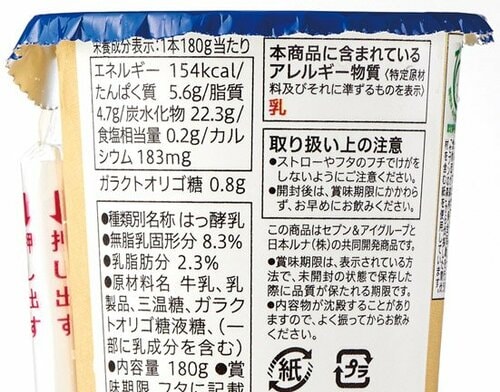 栄養成分表示:1本180g当たり
エネルギー 154kcal/
たんぱく質 5.6g/脂質
4.7g/炭水化物 22.3g/
食塩相当量 0.2g/カル
シウム 183mg
ガラクトオリゴ糖 0.8g
●種類別名称 はっ酵乳
●無脂乳固形分 8.3%
●乳脂肪分 2.3%
●原材料名 牛乳、乳
製品、三温糖、ガラク
トオリゴ糖液糖、(一
部に乳成分を含む)
●内容量 180g ●賞
味期限 フタに記載
本商品に含まれている
アレルギー物質〈特定原材
料及びそれに準ずるものを表示〉
乳
取り扱い上の注意
●ストローやフタのフチでけがを
しないようにご注意ください。
●開封後は、賞味期限にかかわら
ず、お早めにお飲みください。
この商品はセブン&アイグループと
日本ルナ(株)の共同開発商品です。
●賞味期限は、表示されている方
法で、未開封の状態で保存した
際に品質が保たれる期限です。
●内容物が沈殿することがありま
すので、よく振ってからお飲み
ください。
紙
プラ
押し出す
押し出す